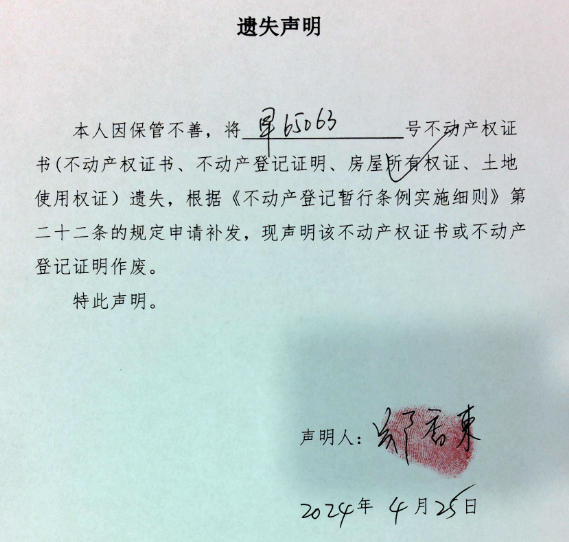 遗失声明
本人因保管不善，将 单65063 号不动产权证
书(不动产权证书、不动产登记证明、房屋所有权证、土地
使用权证）遗失，根据《不动产登记暂行条例实施细则》第
二十二条的规定申请补发，现声明该不动产权证书或不动产
登记证明作废。
特此声明。
声明人：郑香東
2024年 4月25日